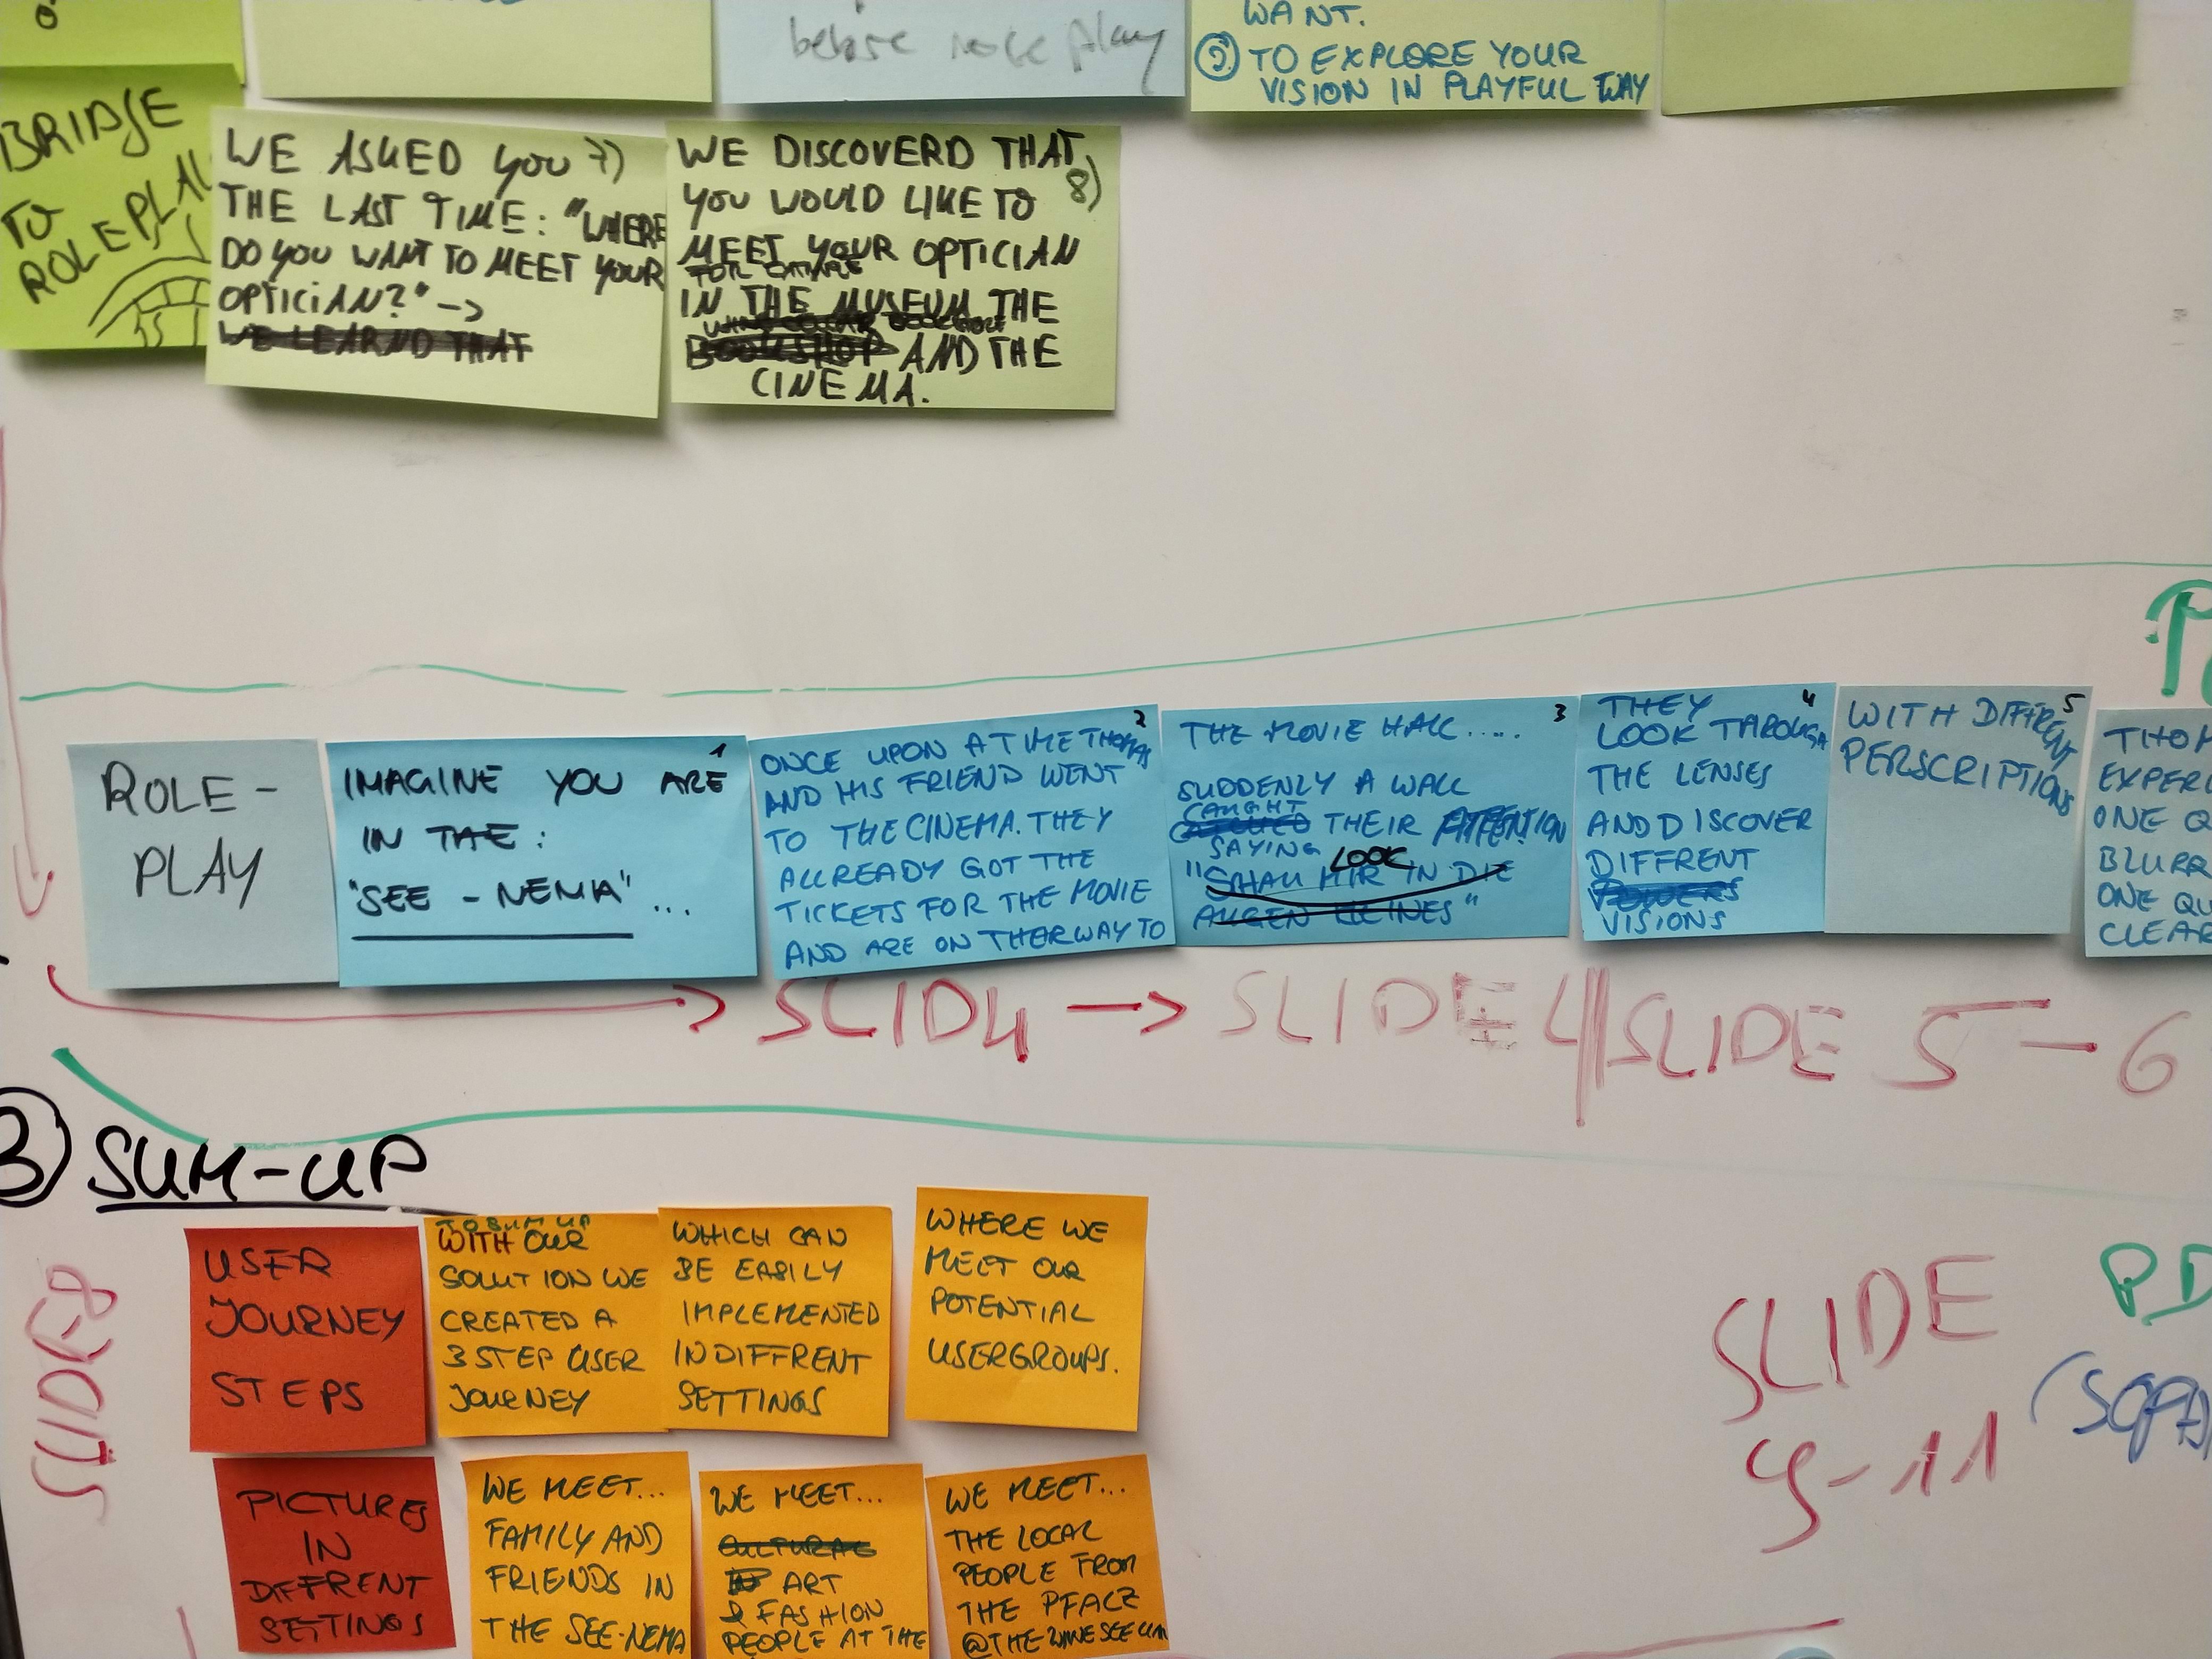 before role play
WANT.
② TO EXPLORE YOUR
VISION IN PLAYFUL WAY
BRIDGE
TO
ROLEPLAY
WE ASKED YOU 7)
THE LAST TIME: "WHERE
DO YOU WANT TO MEET YOUR
OPTICIAN?" ->
WE LEARND THAT
WE DISCOVERD THAT
8)
YOU WOULD LIKE TO
MEET YOUR OPTICIAN
IN THE MUSEUM THE
BOOKSHOP AND THE
CINEMA.
ROLE-
PLAY
1
IMAGINE YOU ARE
IN THE:
"SEE - NEMA" ...
2
ONCE UPON A TIME THOMAS
AND HIS FRIEND WENT
TO THE CINEMA. THEY
ALLREADY GOT THE
TICKETS FOR THE MOVIE
AND ARE ON THERWAY TO
3
THE MOVIE HALL.....
SUDDENLY A WALL
CAUGHT
THEIR ATTENTION
SAYING LOOK
"SCHAU MIR IN DIE
AUGEN KLEINES"
4
THEY
LOOK THROUGH
THE LENSES
AND DISCOVER
DIFFRENT
POWERS
VISIONS
5
WITH DIFFRENT
PERSCRIPTIONS
THOM
EXPERI
ONE QU
BLURR
ONE QU
CLEAR
SLID4 -> SLIDE 4 || SLIDE 5 - 6
3) SUM-UP
SLIDE8
USER
JOURNEY
STEPS
TO SUM UP
WITH OUR
SOLUTION WE
CREATED A
3 STEP USER
JOURNEY
WHICH CAN
BE EASILY
IMPLEMENTED
IN DIFFRENT
SETTINGS
WHERE WE
MEET OUR
POTENTIAL
USERGROUPS.
SLIDE
9-11
PD
PICTURES
IN
DIFFRENT
SETTINGS
WE MEET...
FAMILY AND
FRIENDS IN
THE SEE-NEMA
WE MEET...
CULTURAL
ART
& FASHION
PEOPLE AT THE
WE MEET...
THE LOCAL
PEOPLE FROM
THE PFALZ
@THE WINESEEUM